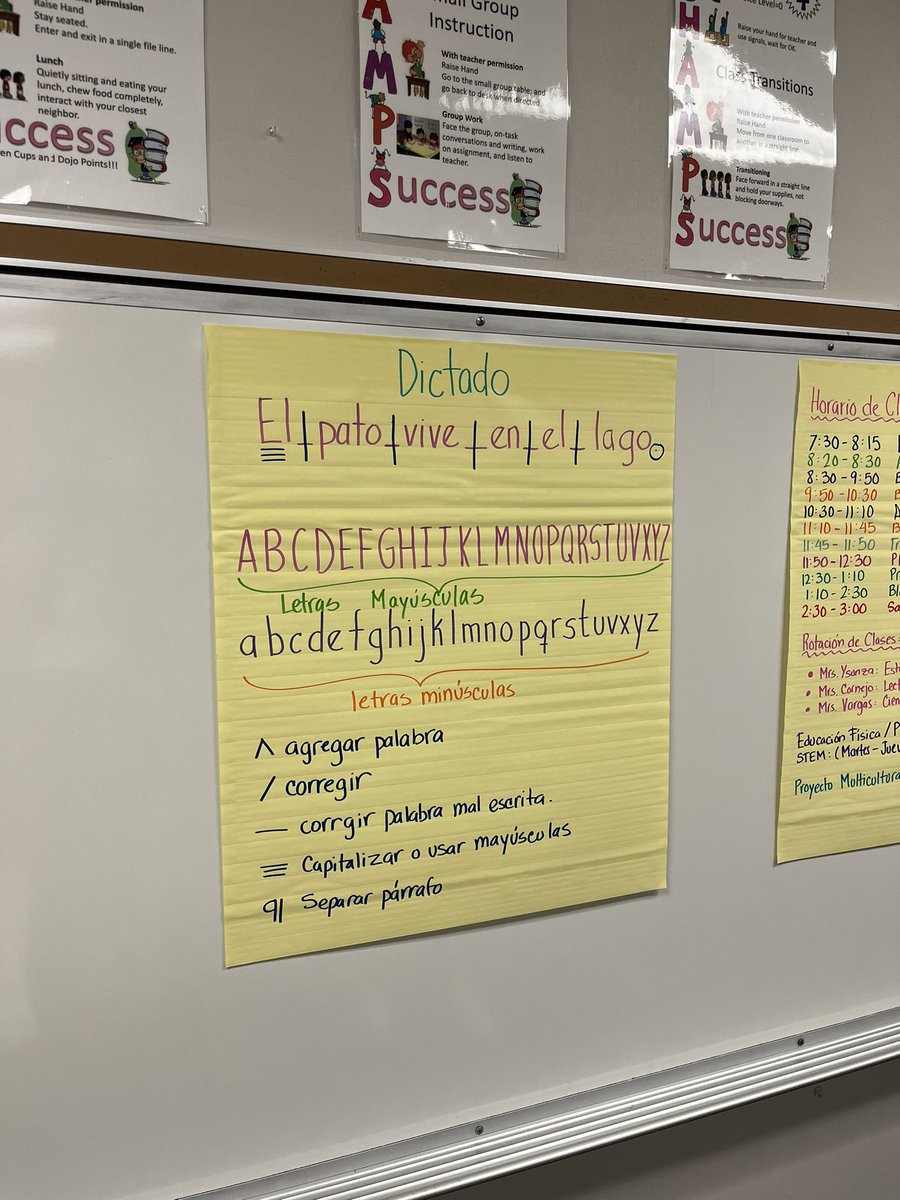 permission
Raise Hand
Stay seated.
Enter and exit in a single file line.
Lunch
Quietly sitting and eating your
lunch, chew food completely,
interact with your closest
neighbor.
uccess
en Cups and Dojo Points!!!
A
M
P
Success
Small Group
Instruction
With teacher permission
Raise Hand
Go to the small group table; and
go back to desk when directed
Group Work
Face the group, on-task
conversations and writing, work
on assignment, and listen to
teacher.
H
A
M
P
Success
Level=0
Raise your hand for teacher and
use signals, wait for OK.
Class Transitions
With teacher permission
Raise Hand
Move from one classroom to
another in a straight line.
Transitioning
Face forward in a straight line
and hold your supplies, not
blocking doorways.
Dictado
El pato vive en el lago.
ABCDEFGHIJKLMNOPQRSTUVXYZ
Letras Mayúsculas
abcdefghijklmnopqrstuvxyz
letras minúsculas
^ agregar palabra
/ corregir
— corrgir palabra mal escrita.
≡ Capitalizar o usar mayúsculas
¶ Separar párrafo
Horario de Cl
7:30-8:15
8:20-8:30
8:30-9:50
9:50-10:30
10:30-11:10
11:10-11:45
11:45-11:50
11:50-12:30
12:30-1:10
1:10-2:30
2:30-3:00
Rotación de Clases:
• Mrs. Ysanza: Est
• Mrs. Cornejo: Lect
• Mrs. Vargas: Cien
Educación Física / P
STEM: (Martes-Juev
Proyecto Multicultura